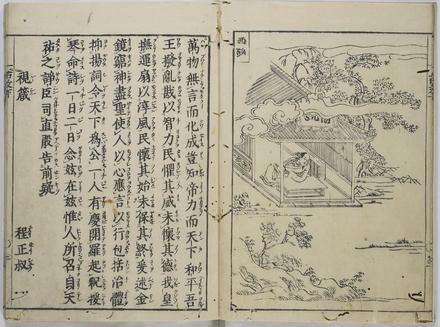 西銘
萬物無言而化成豈知帝力而天下和平吾
王撥亂戡以智力民懼其威未懷其德我皇
撫運扇以淳風民懷其始未保其終爰述金
鏡窮神盡聖使人以心應言以行包括治體
抑揚詞令天下為公一人有慶開羅起祝援
琴命詩一日二日念茲在茲惟人所召自天
祐之諍臣司直敢告前疑
視箴
程正叔